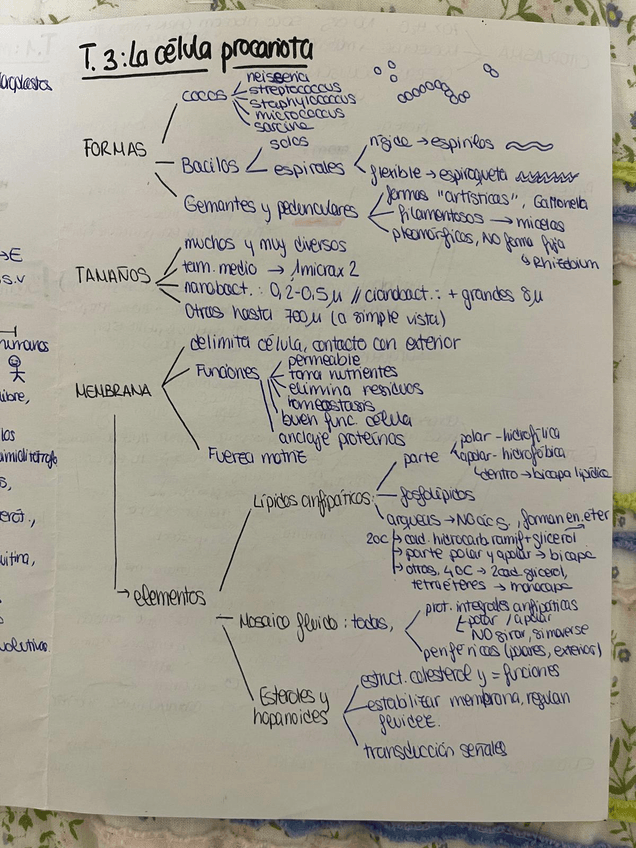 T. 3: La célula procariota
FORMAS
cocos
neisseria
streptococcus
staphylococcus
micrococcus
sarcina
Bacilos
solos
espirales
rígida → espirilos
flexible → espiroqueta
Gemantes y pedunculares
formas "artísticas", Gallionella
filamentosos → micelas
pleomórficas, NO forma fija
Rhizobium
TAMAÑOS
muchos y muy diversos
tam. medio → 1micra x 2
nanobact.: 0,2-0,5 µ // cianobact.: + grandes 8µ
Otras hasta 700µ (a simple vista)
MEMBRANA
delimita célula, contacto con exterior
Funciones
permeable
toma nutrientes
elimina residuos
homeostasis
buen func. célula
anclaje proteínas
Fuerza motriz
→ elementos
Lípidos anfipáticos:
parte
polar - hidrofílica
apolar - hidrofóbica
dentro → bicapa lipídica
fosfolípidos
arqueas → NO ács., forman en. eter
20C
cad. hidrocarb ramif + glicerol
parte polar y apolar → bicapa
otros, 40C → 2cad. glicerol,
tetraéteres → monocapa
Mosaico fluido: todas,
prot. integrales anfipáticas
polar / apolar
NO girar, si moverse
periféricas (polares, exterior)
Esteroles y
hopanoides
estruct. colesterol y = funciones
estabilizar membrana, regulan
fluidez.
transducción señales
humanos
→E
s.v